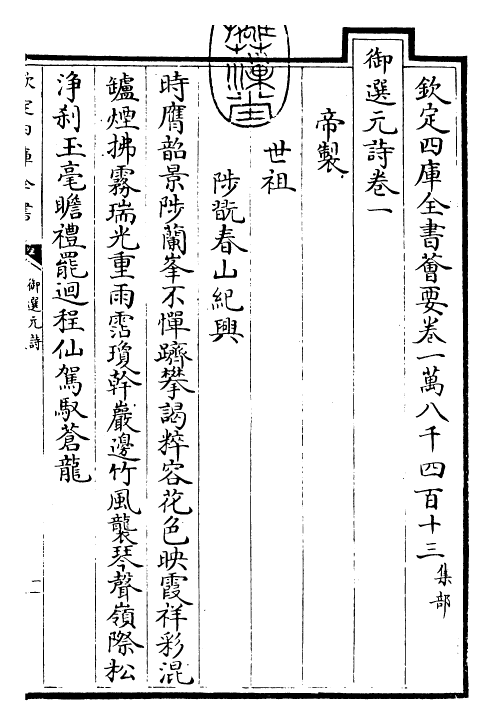 欽定四庫全書薈要卷一萬八千四百十三 集部
御選元詩卷一
帝製
世祖
陟翫春山紀興
時膺韶景陟蘭峯不憚躋攀謁粹容花色映霞祥彩混
鑪煙拂霧瑞光重雨霑瓊幹巖邊竹風襲琴聲嶺際松
淨刹玉毫瞻禮罷迴程仙駕馭蒼龍
欽定四庫全書
御選元詩